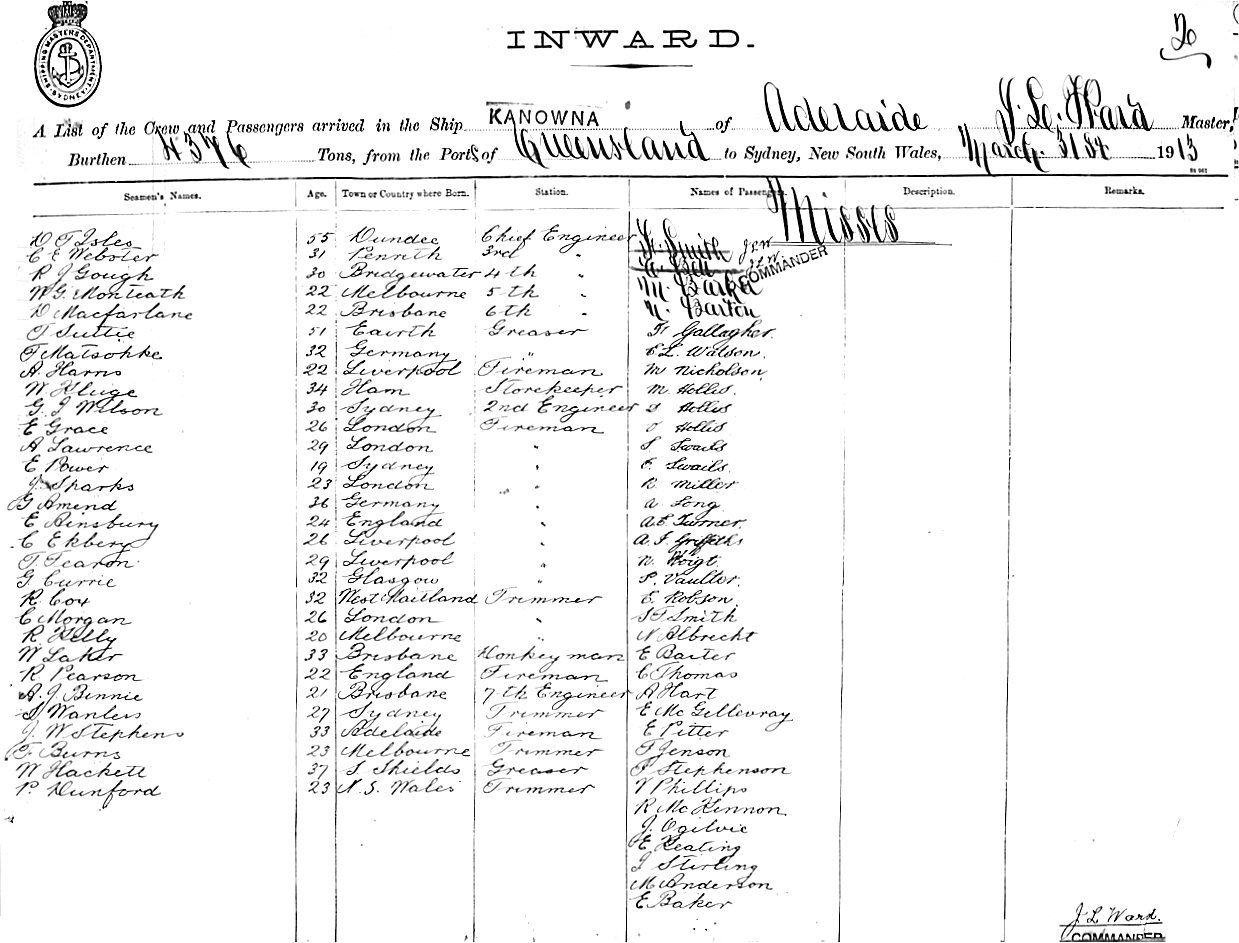 SHIPPING MASTERS DEPARTMENT SYDNEY
INWARD.
A List of the Crew and Passengers arrived in the Ship KANOWNA of Adelaide J. L. Ward Master,
Burthen 4376 Tons, from the Ports of Queensland to Sydney, New South Wales, March 31st 1913
Seamen's Names. Age. Town or Country where Born. Station. Names of Passengers. Description. Remarks.
Misses
D T Isles 55 Dundee Chief Engineer Smith J.L.W
C E Webster 31 Penrith 3rd " Bell J.L.W
COMMANDER
R J Gough 30 Bridgewater 4th " M. Barker
W. G. Monteath 22 Melbourne 5th " N. Barton
D Macfarlane 22 Brisbane 6th "
T Suttie 51 Eairth Greaser Gallagher.
T Matsohke 32 Germany " E L. Watson.
A. Harris 22 Liverpool Fireman M Nicholson
W Kluge 34 Ham Storekeeper M. Hollis.
G. J Wilson 30 Sydney 2nd Engineer S Hollis
E Grace 26 London Fireman O Hollis
A Lawrence 29 London " S Swails
E Power 19 Sydney " E. Swails.
J. Sparks 23 London " R Miller
G Amend 36 Germany A Long
E Ainsbury 24 England " A.E Turner.
C Ekberg 26 Liverpool " A. J. Griffiths
T. Fearon 29 Liverpool " N. Voigt.
G Currie 32 Glasgow " P. Vaulter.
R Coy 32 West Maitland Trimmer E. Robson
C Morgan 26 London " S F Smith
R. Kelly 20 Melbourne " N Albrecht
W Laker 33 Brisbane Donkeyman E Baxter
R Pearson 22 England Fireman C Thomas
A. J. Binnie 21 Brisbane 7th Engineer A Hart
S Wanless 27 Sydney Trimmer E Mc Gillevray
J. W Stephens 33 Adelaide Fireman E Pitter
T. Burns 23 Melbourne Trimmer T Jenson
W Hackett 37 S Shields Greaser P Stephenson
P. Dunford 23 N. S. Wales Trimmer V Phillips
R Mc Kinnon
J. Ogilvie
E Keating
J Stirling
M Anderson
E Baker
J. L Ward.
COMMANDER